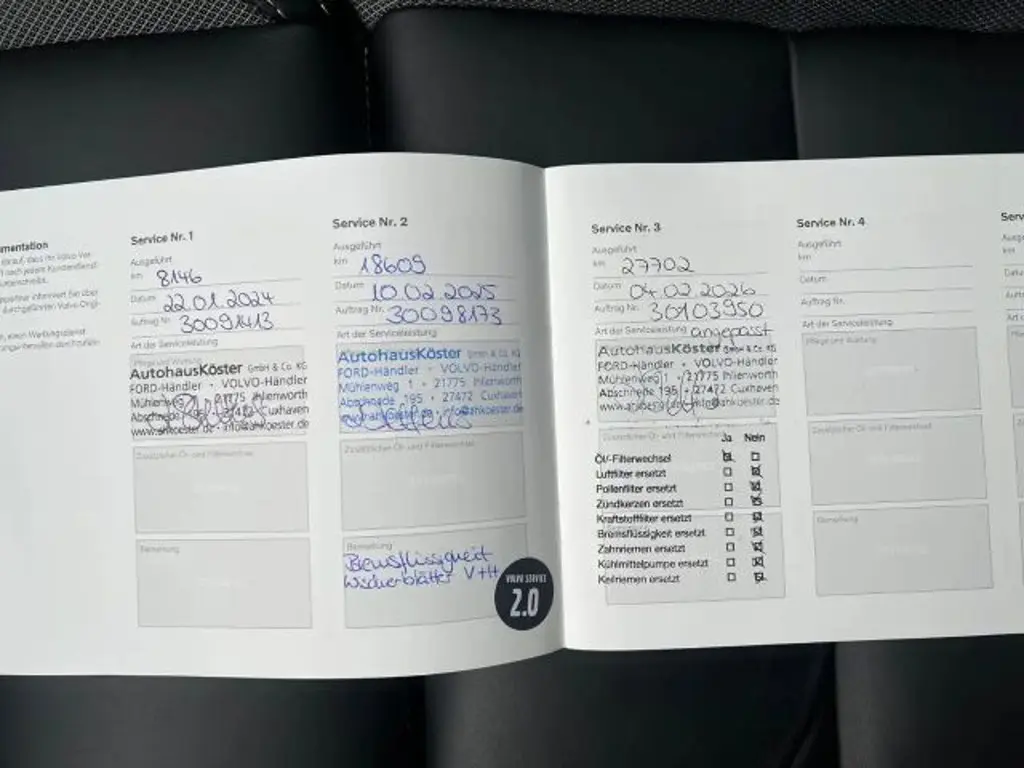 mentation
Service Nr. 1
Ausgeführt
km 8146
Datum 22.01.2024
Auftrag Nr. 30091413
Art der Serviceleistung
Pflege und Wartung
AutohausKöster GmbH & Co. KG
FORD-Händler • VOLVO-Händler
Mühlenweg 21775 Ihlienworth
Abschnede 195 Cuxhaven
Zusätzlicher Öl- und Filterwechsel
Bemerkung
Service Nr. 2
Ausgeführt
km 18609
Datum 10.02.2025
Auftrag Nr. 30098173
Art der Serviceleistung
AutohausKöster GmbH & Co. KG
FORD-Händler • VOLVO-Händler
Mühlenweg 1 • 21775 Ihlienworth
Abschnede 195 • 27472 Cuxhaven
Zusätzlicher Öl- und Filterwechsel
Bemerkung
Bremsflüssigkeit
Wischerblätter V+H
VOLVO SERVICE
2.0
Service Nr. 3
Ausgeführt
km 27702
Datum 04.02.2026
Auftrag Nr. 30103950
Art der Serviceleistung angepasst
AutohausKöster GmbH & Co. KG
FORD-Händler • VOLVO-Händler
Mühlenweg 1 • 21775 Ihlienworth
Abschnede 195 • 27472 Cuxhaven
Ja Nein
Öl/-Filterwechsel
Luftfilter ersetzt
Pollenfilter ersetzt
Zündkerzen ersetzt
Kraftstofffilter ersetzt
Bremsflüssigkeit ersetzt
Zahnriemen ersetzt
Kühlmittelpumpe ersetzt
Keilriemen ersetzt
Service Nr. 4
Ausgeführt
km
Datum
Auftrag Nr.
Art der Serviceleistung
Pflege und Wartung
Zusätzlicher Öl- und Filterwechsel
Bemerkung